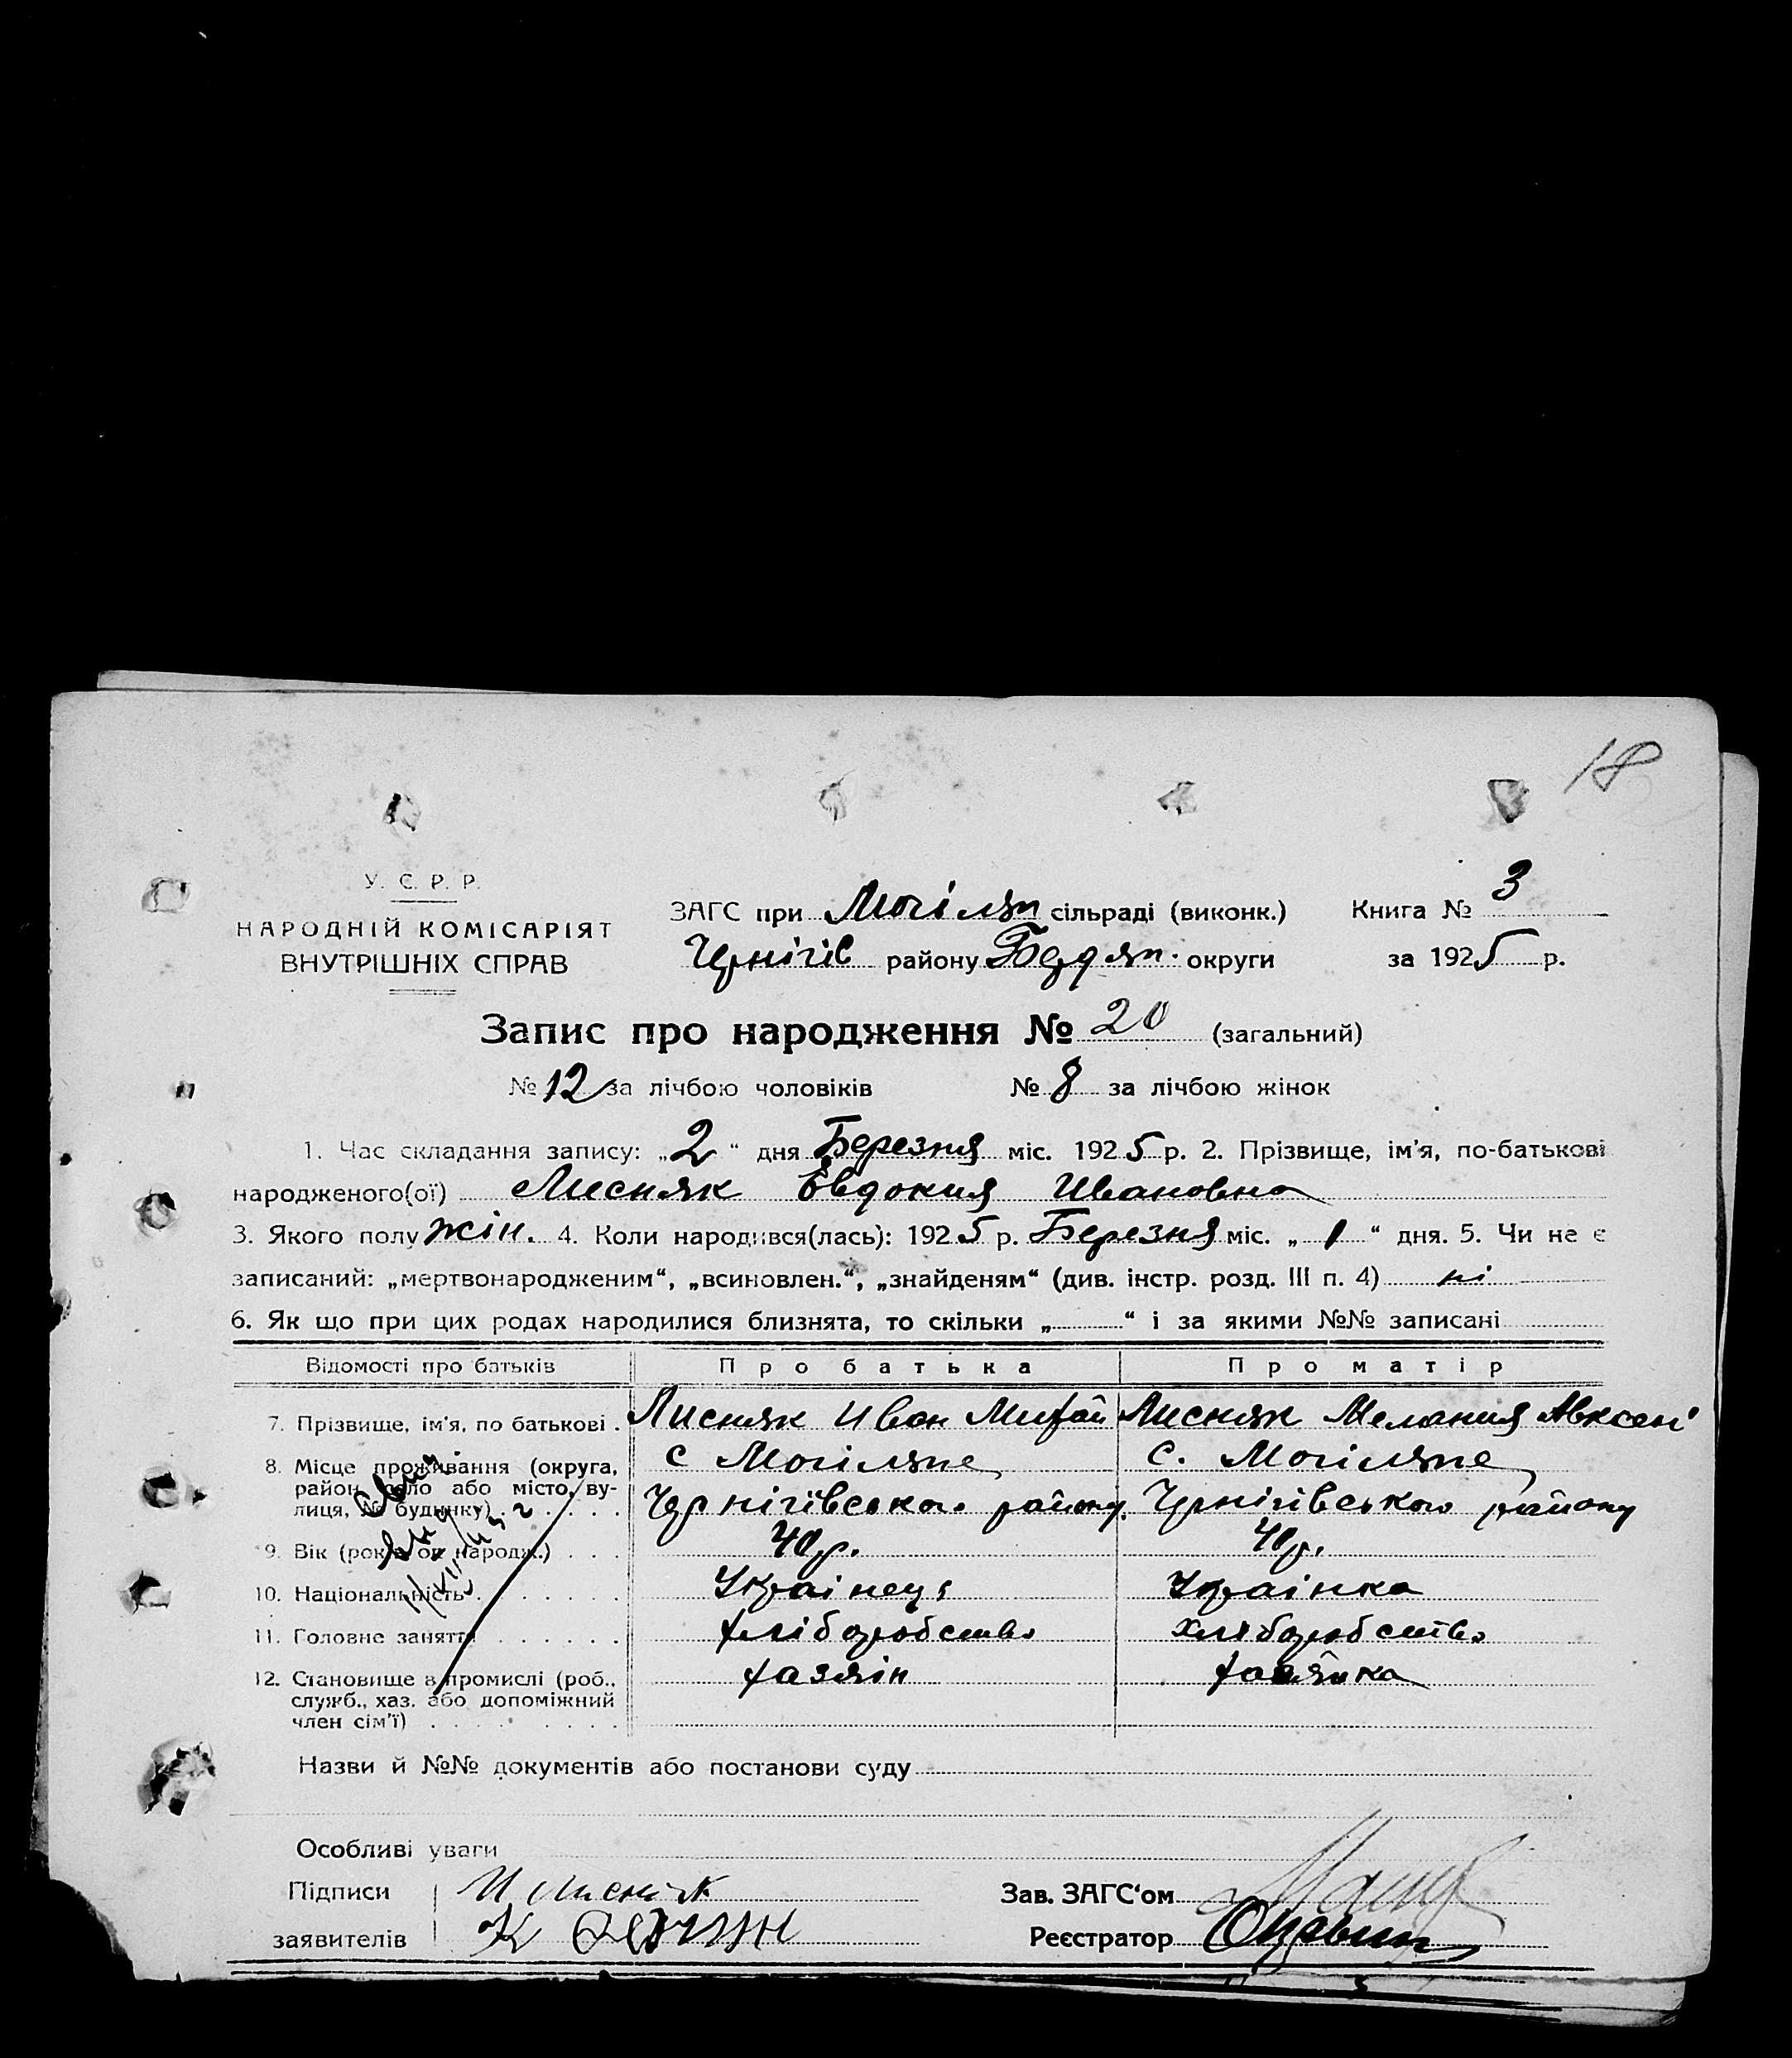 18
У. С. Р. Р.
НАРОДНІЙ КОМІСАРІЯТ
ВНУТРІШНІХ СПРАВ
ЗАГС при Могілян сільраді (виконк.) Книга № 3
Чернігів району Бердян. округи за 1925 р.
Запис про народження № 20 (загальний)
№ 12 за лічбою чоловіків № 8 за лічбою жінок
1. Час складання запису: „2“ дня Березня міс. 1925 р. 2. Прізвище, ім'я, по-батькові
народженого(ої) Лисняк Евдокия Ивановна
3. Якого полу жін. 4. Коли народився(лась): 1925 р. Березня міс. „1“ дня. 5. Чи не є
записаний: „мертвонародженим“, „всиновлен.“, „знайденям“ (див. інстр. розд. III п. 4) ні
6. Як що при цих родах народилися близнята, то скільки „ “ і за якими №№ записані
Відомості про батьків Про батька Про матір
7. Прізвище, ім'я, по батькові . Лисняк Иван Митай Лисняк Мелания Авксені
8. Місце проживання (округа, с Могіляне с. Могіляне
район, село або місто, ву-
лиця, № будинку) . . . . . Чернігівського району. Чернігівського району
9. Вік (років од народж.) . . . 40 р. 40 р.
10. Національність . . . . . . . Украінець Украінка
11. Головне заняття . . . . . . хліборобство хліборобство
12. Становище в промислі (роб., хазяін хазяйка
служб., хаз. або допоміжний
член сім'ї) . . . . . . . . .
Назви й №№ документів або постанови суду
Особливі уваги
Підписи И Лисняк Зав. ЗАГС'ом
заявителів К Реєстратор